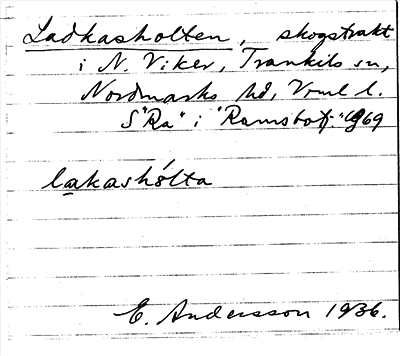 Ladkasholten, skogstrakt
i N. Viker, Trankils sn,
Nordmarks hd, Vrml l.
S "Ra" i "Ramsbol"; 969
lakashólta
E. Andersson 1936.